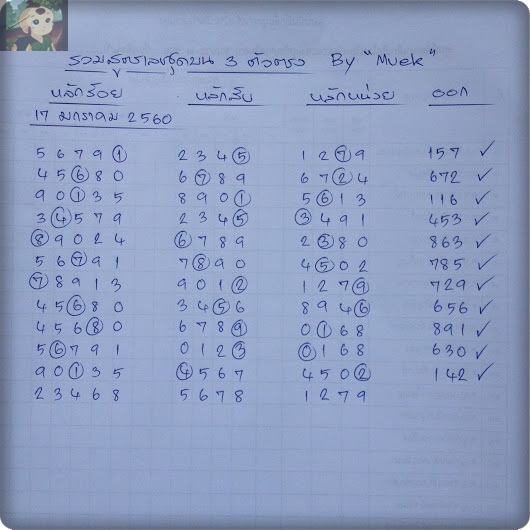 รวมสูตรเลขชุดบน 3 ตัวตรง By "Muek"
หลักร้อย หลักสิบ หลักหน่วย ออก
17 มกราคม 2560
5 6 7 9 1 2 3 4 5 1 2 7 9 157 ✓
4 5 6 8 0 6 7 8 9 6 7 2 4 672 ✓
9 0 1 3 5 8 9 0 1 5 6 1 3 116 ✓
3 4 5 7 9 2 3 4 5 3 4 9 1 453 ✓
8 9 0 2 4 6 7 8 9 2 3 8 0 863 ✓
5 6 7 9 1 7 8 9 0 4 5 0 2 785 ✓
7 8 9 1 3 9 0 1 2 1 2 7 9 729 ✓
4 5 6 8 0 3 4 5 6 8 9 4 6 656 ✓
4 5 6 8 0 6 7 8 9 0 1 6 8 891 ✓
5 6 7 9 1 0 1 2 3 0 1 6 8 630 ✓
9 0 1 3 5 4 5 6 7 4 5 0 2 142 ✓
2 3 4 6 8 5 6 7 8 1 2 7 9